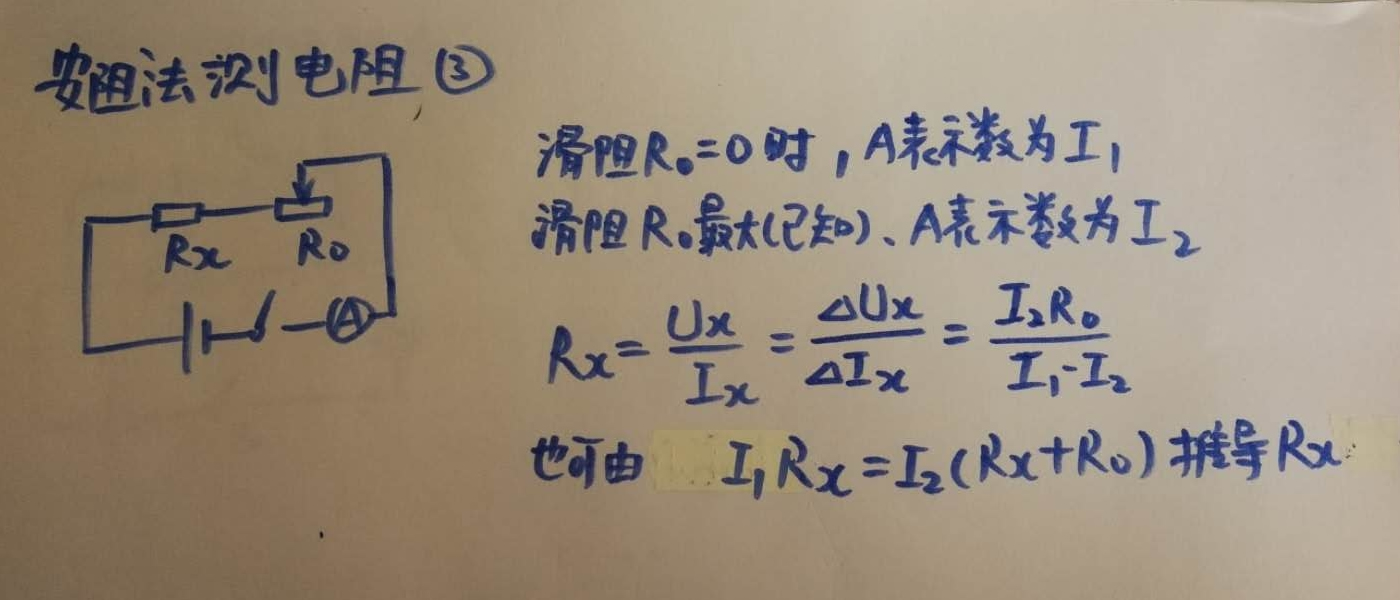 安阻法测电阻③
Rx
R₀
A
滑阻R₀=0时,A表示数为I₁
滑阻R₀最大(已知)、A表示数为I₂
Rx=Ux/Ix=ΔUx/ΔIx=I₂R₀/I₁-I₂
也可由 I₁Rx=I₂(Rx+R₀)推导Rx